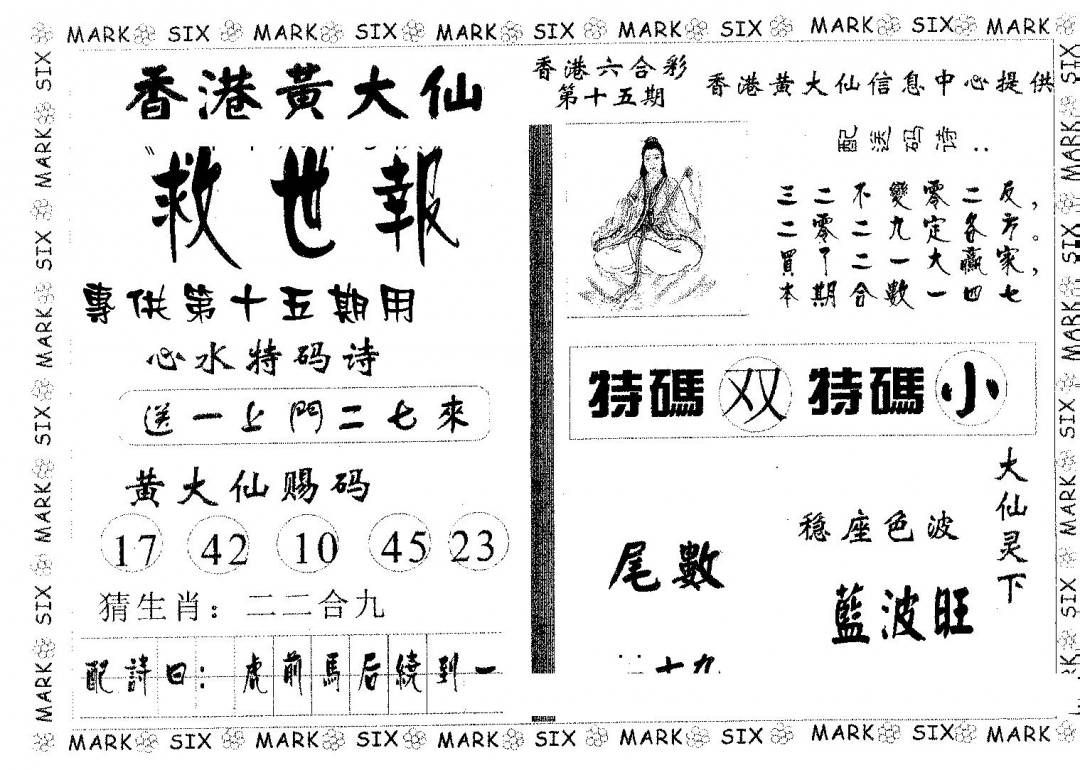 MARK SIX MARK SIX MARK SIX MARK SIX MARK SIX MARK
香港黃大仙
救世報
專供第十五期用
心水特码诗
送一上門二七來
黄大仙赐码
17 42 10 45 23
猜生肖：二二合九
配詩曰：虎前馬后繞到一
香港六合彩
第十五期
香港黄大仙信息中心提供
配送码诗：
三二不變零二反，
二零二九定各方。
買了二一大贏家，
本期合數一四七
特碼双 特碼小
大仙灵下
穩座色波
藍波旺
尾數
二十九
MARK SIX MARK SIX MARK SIX MARK SIX MARK SIX MARK
MARK SIX MARK SIX MARK SIX MARK SIX
SIX MARK SIX MARK SIX MARK SIX MARK